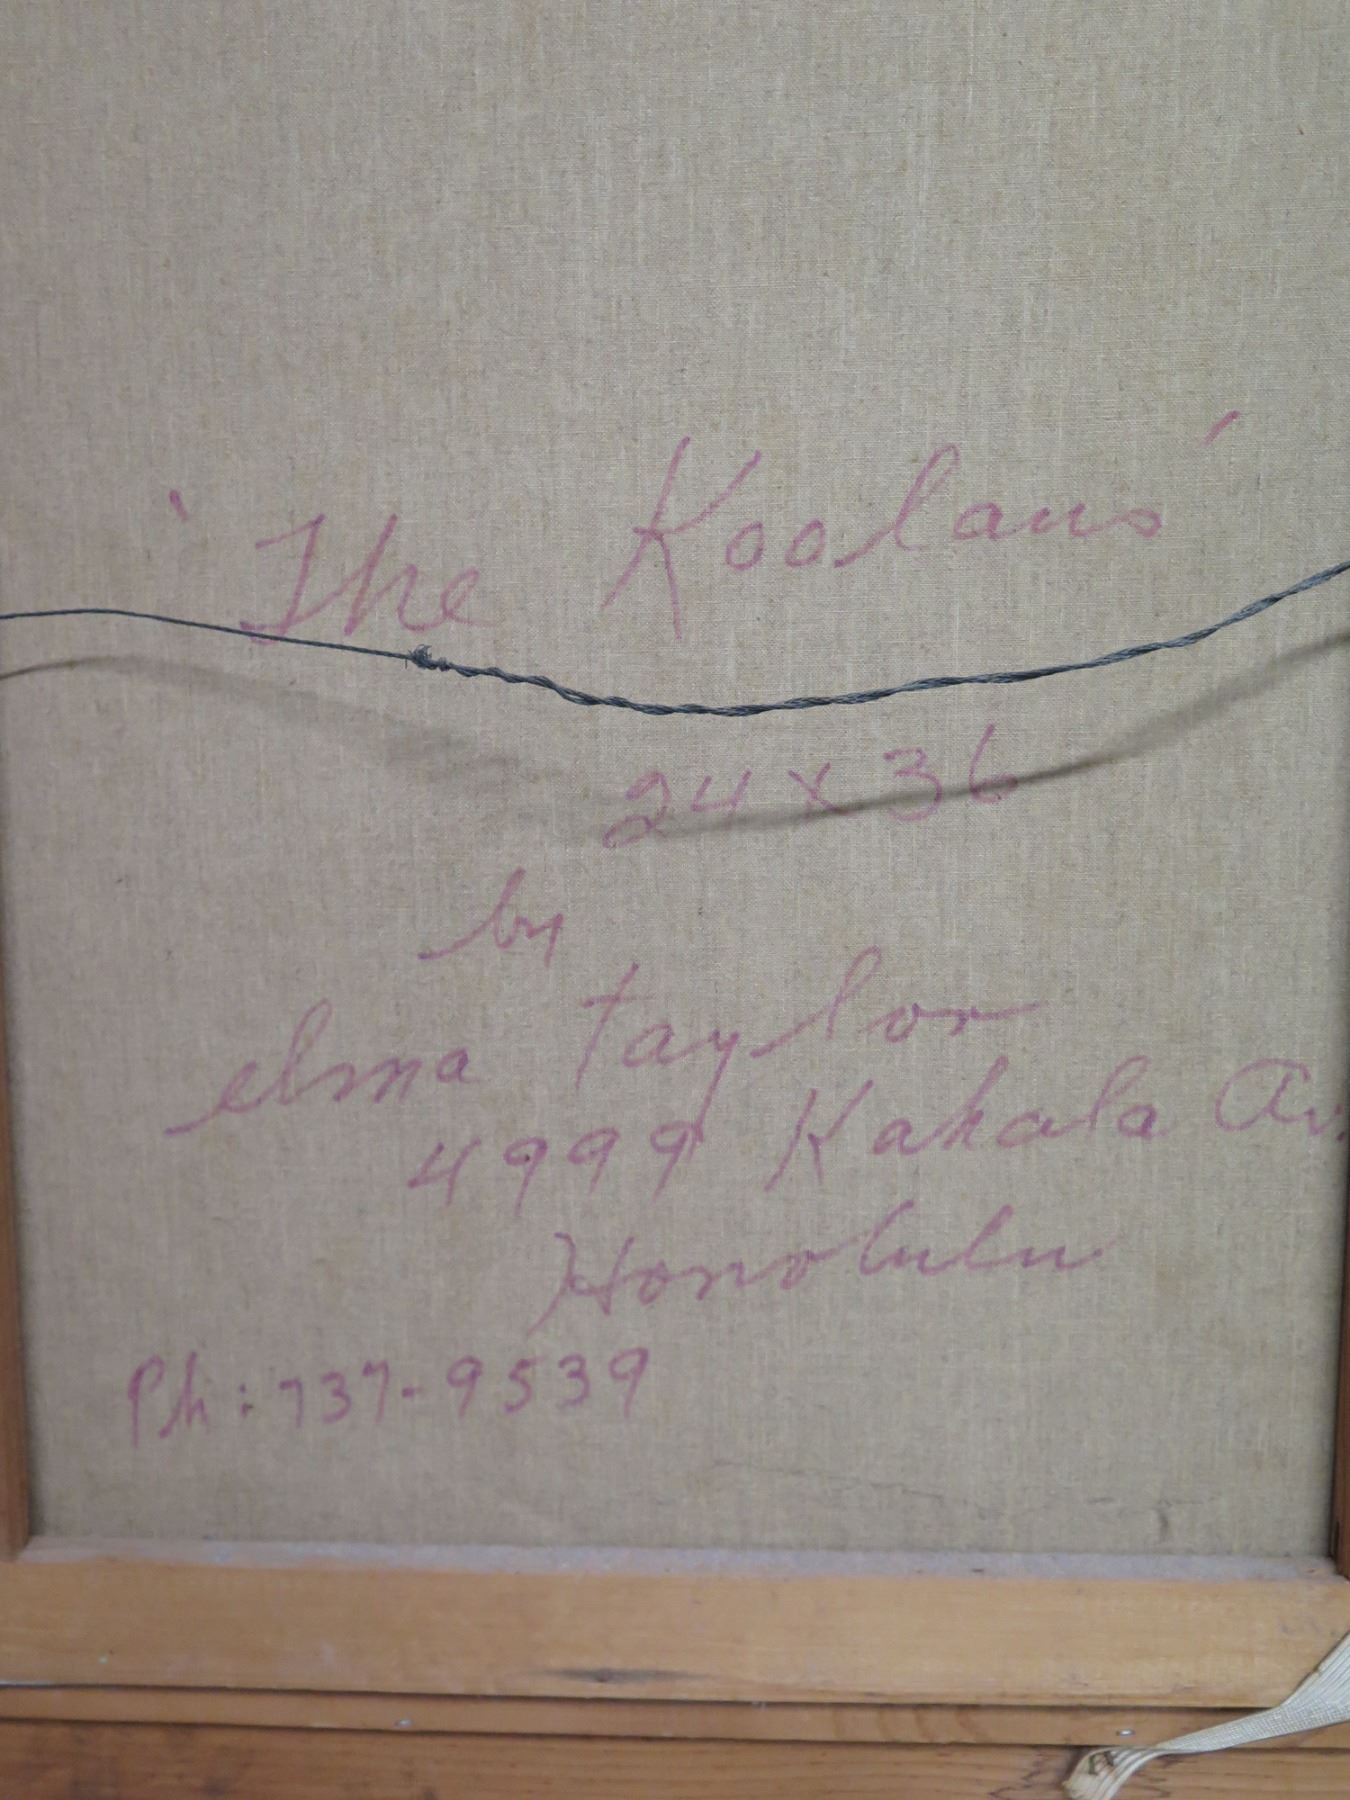 'The Koolaus'
24 x 36
by
elma taylor
4999 Kahala Av.
Honolulu
Ph: 737-9539